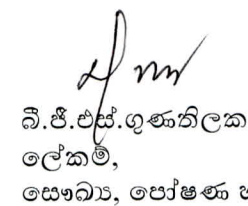 බී.ජී.එස්.ගුණතිලක
ලේකම්,
සෞඛ්‍ය, පෝෂණ